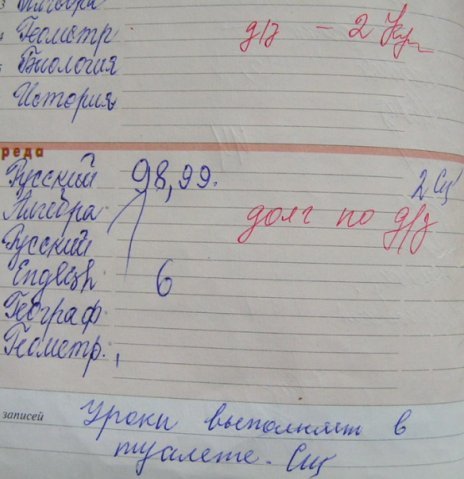 3 Алгебра
4 Геометр д/з - 2
5 Биология
История
реда
Русский 98,99. 2 Сщ
Алгебра долг по д/з
Русский
English 6
Географ.
Геометр.
записей Уроки выполняет в
туалете. Сщ